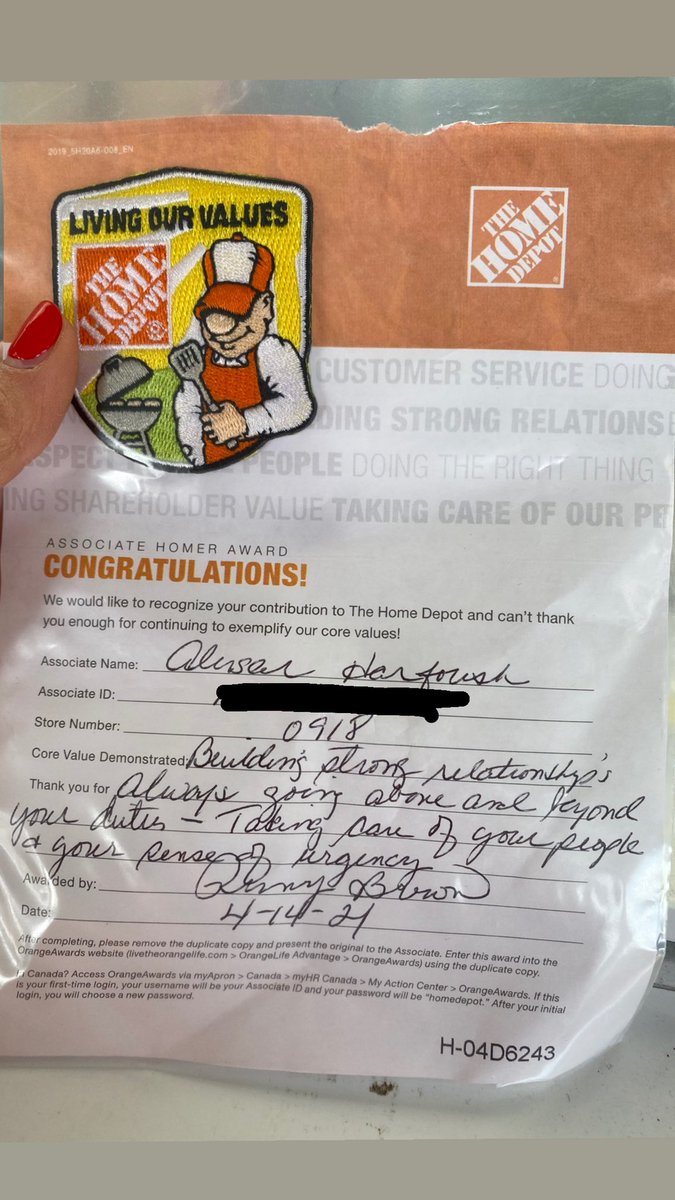 2019_SH20A6-008_EN
LIVING OUR VALUES
THE
HOME
DEPOT
®
THE
HOME
DEPOT
®
CUSTOMER SERVICE DOING
DING STRONG RELATIONS
SPEC PEOPLE DOING THE RIGHT THING
NG SHAREHOLDER VALUE TAKING CARE OF OUR PE
ASSOCIATE HOMER AWARD
CONGRATULATIONS!
We would like to recognize your contribution to The Home Depot and can't thank
you enough for continuing to exemplify our core values!
Associate Name:
Associate ID:
Store Number: 0918
Core Value Demonstrated: Building strong relationship's
Thank you for always going above and beyond
your duties - Taking care of your people
& your sense of urgency
Awarded by: Brown
Date: 4-14-21
After completing, please remove the duplicate copy and present the original to the Associate. Enter this award into the
OrangeAwards website (livetheorangelife.com > OrangeLife Advantage > OrangeAwards) using the duplicate copy.
In Canada? Access OrangeAwards via myApron > Canada > myHR Canada > My Action Center > OrangeAwards. If this
is your first-time login, your username will be your Associate ID and your password will be "homedepot." After your initial
login, you will choose a new password.
H-04D6243